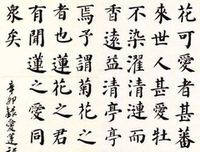 花可愛者甚蕃
來世人甚愛牡
不染濯清漣而
香遠益清亭亭
焉予謂菊花之
者也蓮花之君
有聞蓮之愛同
衆矣
辛卯 愛蓮